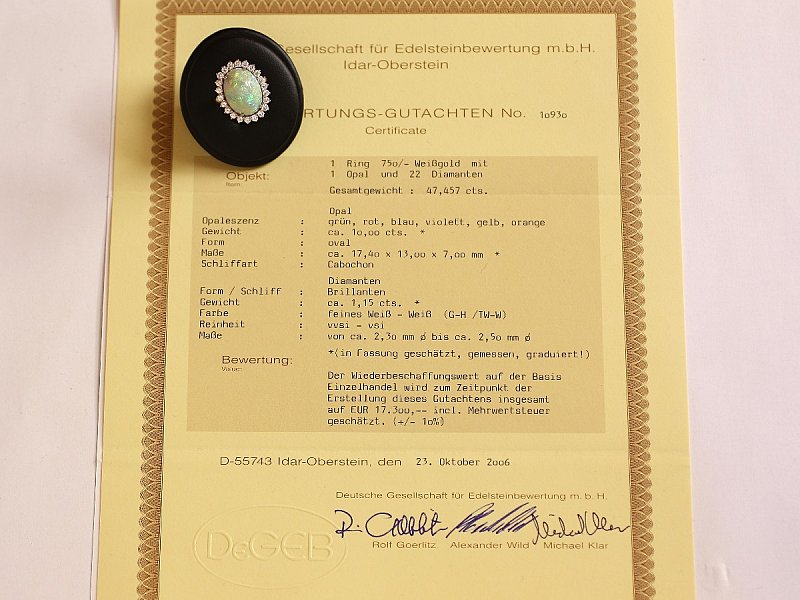 esellschaft für Edelsteinbewertung m.b.H.
Idar-Oberstein
RTUNGS-GUTACHTEN No. 10930
Certificate
Objekt: 1 Ring 750/- Weißgold mit
Item: 1 Opal und 22 Diamanten
Gesamtgewicht : 47,457 cts.
Opal
Opaleszenz : grün, rot, blau, violett, gelb, orange
Gewicht : ca. 10,00 cts. *
Form : oval
Maße : ca. 17,40 x 13,00 x 7,00 mm *
Schliffart : Cabochon
Diamanten
Form / Schliff : Brillanten
Gewicht : ca. 1,15 cts. *
Farbe : feines Weiß - Weiß (G-H /TW-W)
Reinheit : vvsi - vsi
Maße : von ca. 2,30 mm ø bis ca. 2,50 mm ø
*(in Fassung geschätzt, gemessen, graduiert!)
Bewertung:
Value:
Der Wiederbeschaffungswert auf der Basis
Einzelhandel wird zum Zeitpunkt der
Erstellung dieses Gutachtens insgesamt
auf EUR 17.300,-- incl. Mehrwertsteuer
geschätzt. (+/- 10%)
D-55743 Idar-Oberstein, den 23. Oktober 2006
Deutsche Gesellschaft für Edelsteinbewertung m. b. H.
DeGEB
Rolf Goerlitz Alexander Wild Michael Klar